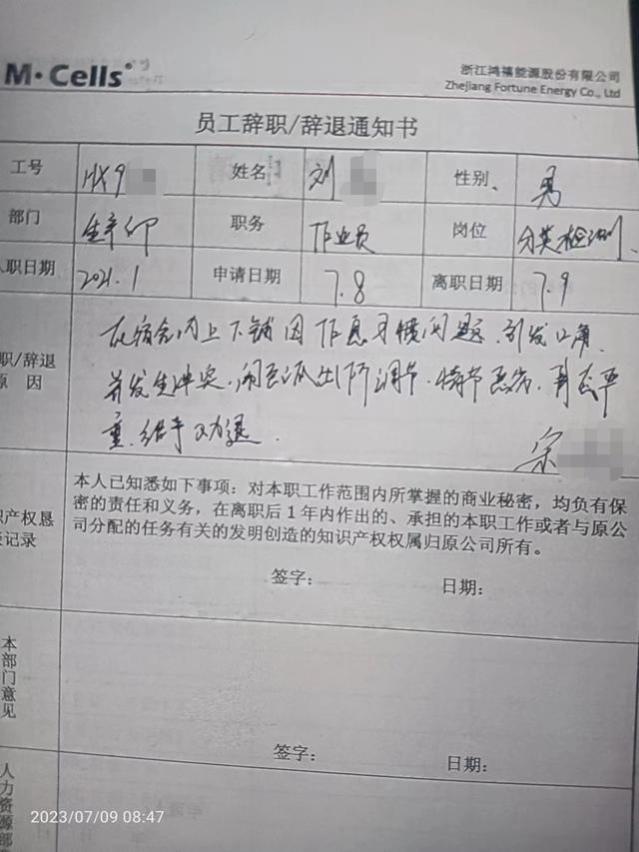 M·Cells
浙江鸿禧能源股份有限公司
Zhejiang Fortune Energy Co., Ltd
员工辞职/辞退通知书
工号 HX9 姓名 刘 性别 男
部门 生产部 职务 作业员 岗位 分类检测
入职日期 2021.1 申请日期 7.8 离职日期 7.9
职/辞退
原 因
在宿舍内上下铺因作息习惯问题,引发口角
并发生冲突,闹至派出所调节,情节恶劣,严
重,给予劝退.
宋
识产权恳
谈记录
本人已知悉如下事项:对本职工作范围内所掌握的商业秘密,均负有保
密的责任和义务,在离职后1年内作出的、承担的本职工作或者与原公
司分配的任务有关的发明创造的知识产权权属归原公司所有。
签字: 日期:
本部门意见
签字: 日期:
人力资源部
2023/07/09 08:47